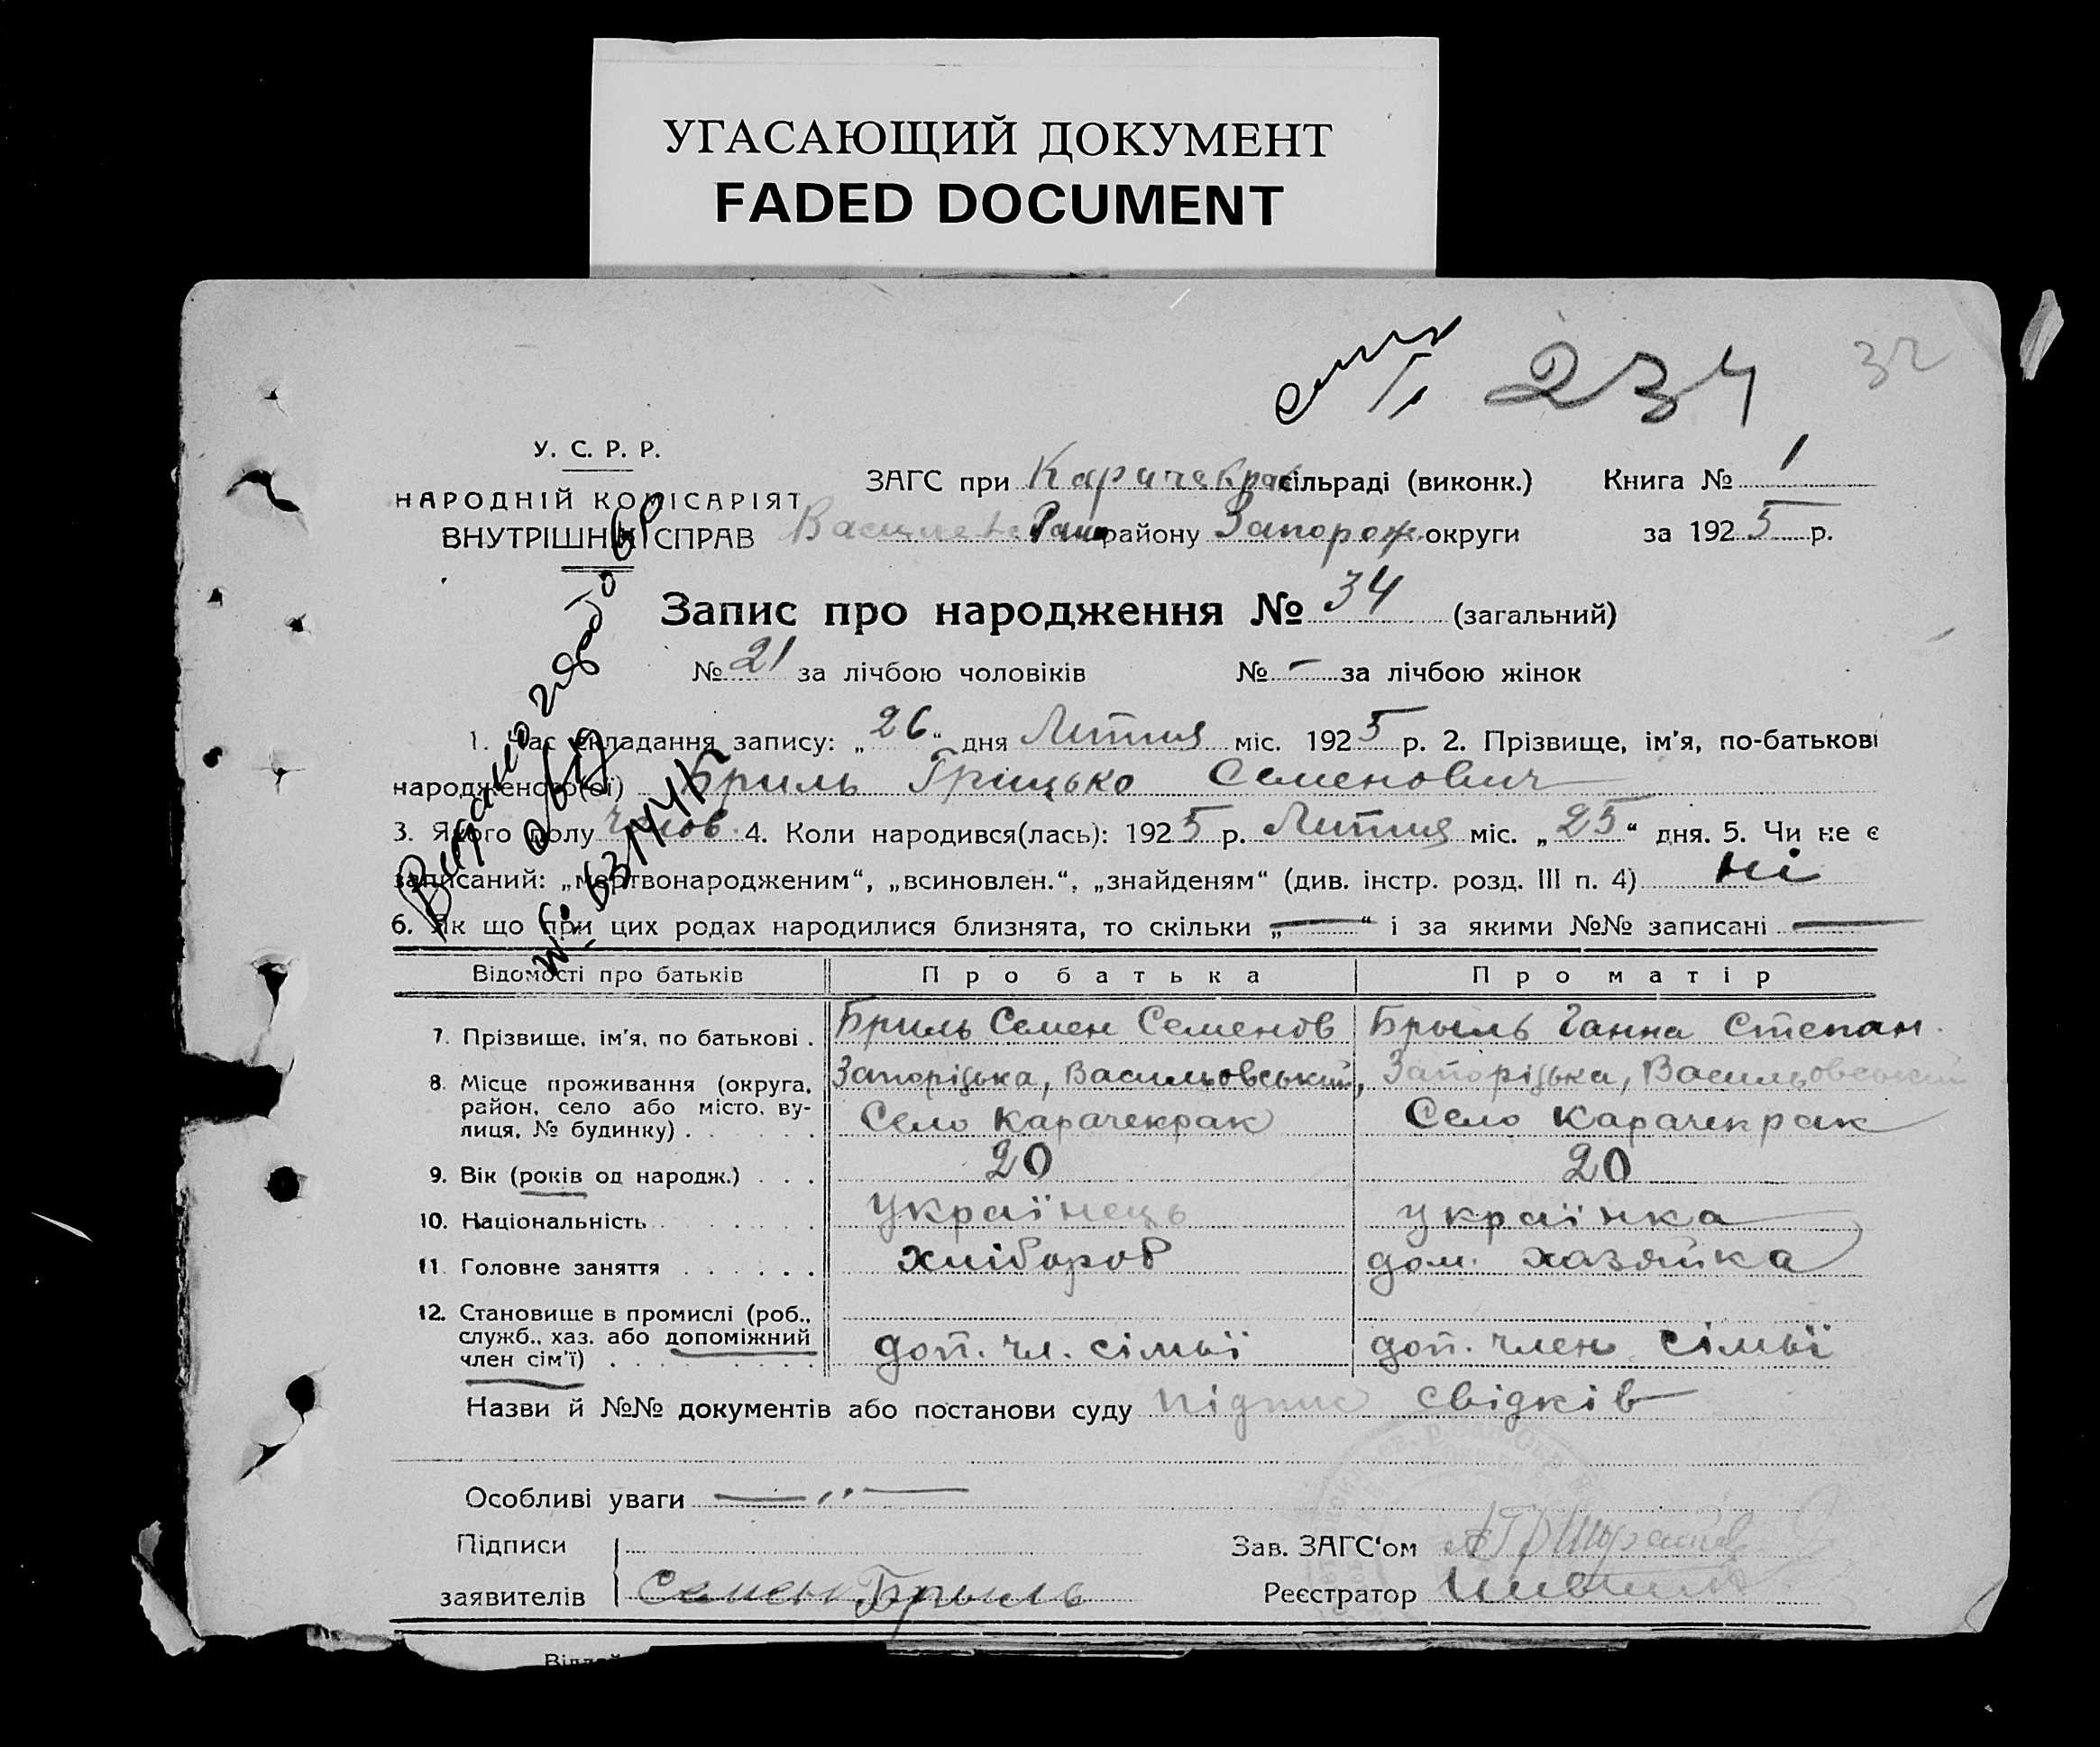 УГАСАЮЩИЙ ДОКУМЕНТ
FADED DOCUMENT
234 32
У. С. Р. Р.
НАРОДНІЙ КОМІСАРІЯТ
ВНУТРІШНІХ СПРАВ
ЗАГС при Карачекрак сільраді (виконк.) Книга № 1
району Запорож. округи за 1925 р.
Запис про народження № 34 (загальний)
№ 21 за лічбою чоловіків № — за лічбою жінок
1. Час складання запису: „26“ дня Лютня міс. 1925 р. 2. Прізвище, ім'я, по-батькові
народженого(ої) Бриль Грицько Семенович
3. Якого полу челов. 4. Коли народився(лась): 1925 р. Лютня міс. „25“ дня. 5. Чи не є
записаний: „мертвонародженим“, „всиновлен.“, „знайденям“ (див. інстр. розд. III п. 4) ні
6. Як що при цих родах народилися близнята, то скільки „—“ і за якими №№ записані —
Відомості про батьків Про батька Про матір
7. Прізвище, ім'я, по батькові . Бриль Семен Семенов Брыль Ганна Степан.
8. Місце проживання (округа, район, село або місто, вулиця, № будинку) . Запоріцька, Васильовський, Запоріцька, Васильовський
Село Карачекрак Село Карачекрак
9. Вік (років од народж.) . . . 20 20
10. Національність українець українка
11. Головне заняття хлібороб дом. хазяйка
12. Становище в промислі (роб.,
служб., хаз. або допоміжний
член сім'ї) доп. чл. сімьї доп. член сімьї
Назви й №№ документів або постанови суду підпис свідків
Особливі уваги — ,, —
Підписи Зав. ЗАГС'ом
заявителів Семен Брыль Реєстратор